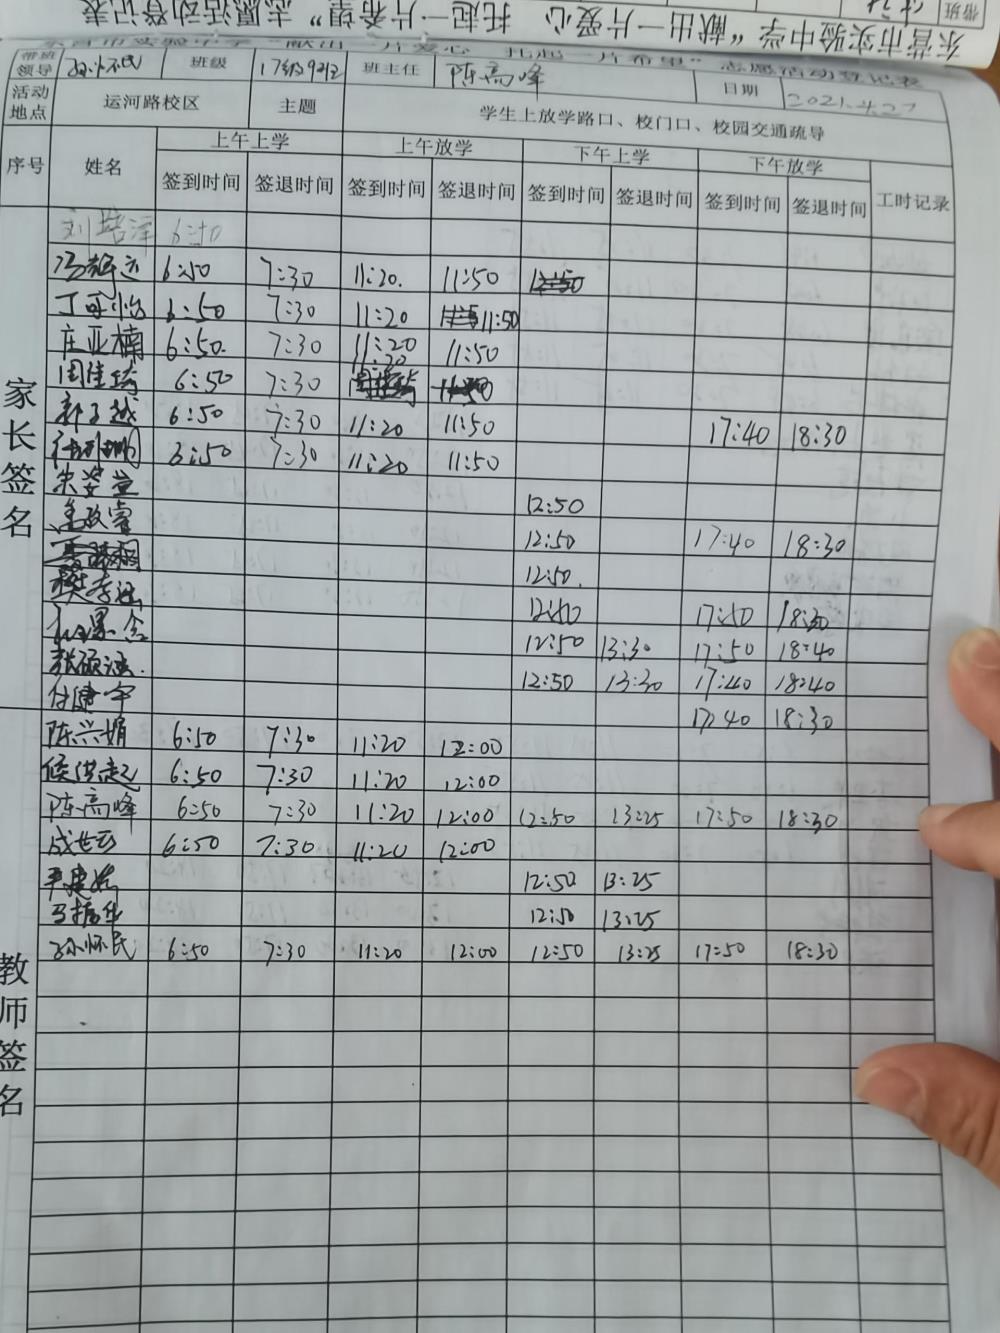 东营市实验中学“献出一片爱心 托起一片希望”志愿活动登记表
带班
东营市实验中学“献出一片爱心 托起一片希望”志愿活动登记表
带班领导 孙怀民 班级 17级9班 班主任 陈高峰 日期 2021.4.27
活动地点 运河路校区 主题 学生上放学路口、校门口、校园交通疏导
序号 姓名 上午上学 上午放学 下午上学 下午放学 工时记录
签到时间 签退时间 签到时间 签退时间 签到时间 签退时间 签到时间 签退时间
家长签名
刘培泽 6:50
6:50 7:30 11:20. 11:50
丁可怡 6:50 7:30 11:20 11:50
庄亚楠 6:50. 7:30 11:20 11:50
周佳琦 6:50 7:30 11:20
郭子越 6:50 7:30 11:20 11:50 17:40 18:30
6:50 7:30 11:20 11:50
12:50
12:50 17:40 18:30
12:50.
18:30
12:50 13:30 17:50 18:40
张硕涵. 12:50 13:30 17:40 18:40
付建宇 17:40 18:30
教师签名
陈兴娟 6:50 7:30 11:20 12:00
侯洪起 6:50 7:30 11:20 12:00
陈高峰 6:50 7:30 11:20 12:00 12:50 13:25 17:50 18:30
成世 6:50 7:30 11:20 12:00
12:50 13:25
马振华 12:50 13:25
孙怀民 6:50 7:30 11:20 12:00 12:50 13:25 17:50 18:30